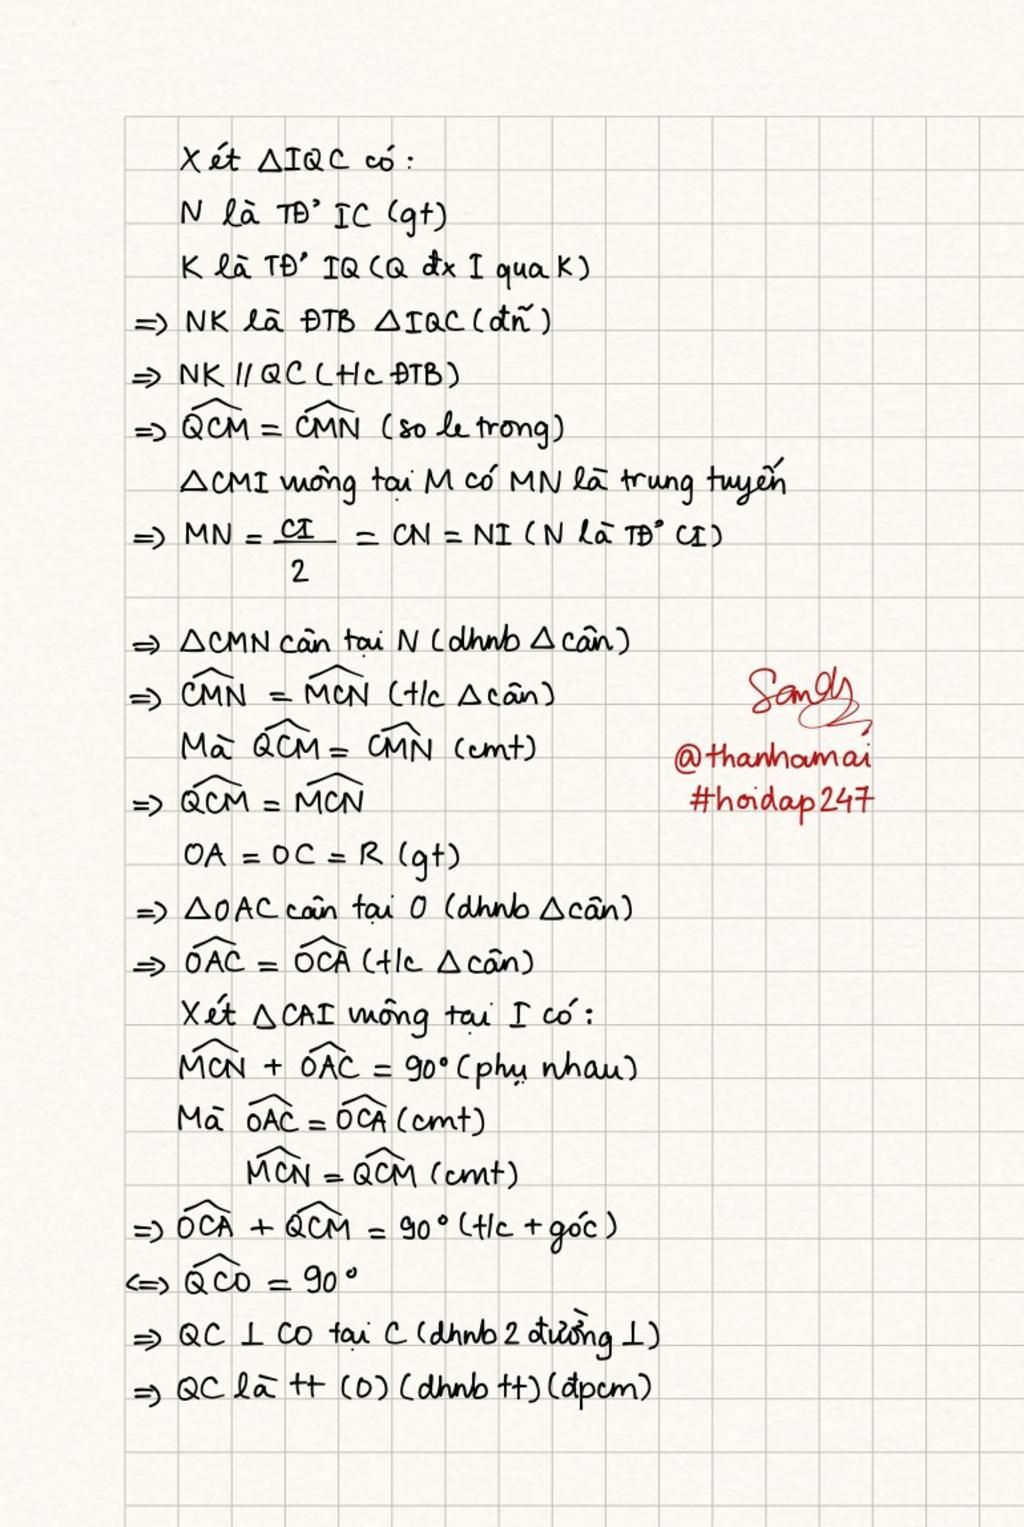 Xét △IQC có:
N là TĐ' IC (gt)
K là TĐ' IQ (Q đx I qua K)
=> NK là ĐTB △IQC (đn~)
=> NK // QC (t/c ĐTB)
=> \widehat{QCM} = \widehat{CMN} (so le trong)
△CMI muông tại M có MN là trung tuyến
=> MN = CI/2 = CN = NI (N là TĐ' CI)
=> △CMN cân tại N (dhnb △ cân)
=> \widehat{CMN} = \widehat{MCN} (t/c △ cân)
Mà \widehat{QCM} = \widehat{CMN} (cmt)
=> \widehat{QCM} = \widehat{MCN}
OA = OC = R (gt)
=> △OAC cân tại O (dhnb △cân)
=> \widehat{OAC} = \widehat{OCA} (t/c △ cân)
Xét △CAI muông tại I có:
\widehat{MCN} + \widehat{OAC} = 90° (phụ nhau)
Mà \widehat{OAC} = \widehat{OCA} (cmt)
\widehat{MCN} = \widehat{QCM} (cmt)
=> \widehat{OCA} + \widehat{QCM} = 90° (t/c + góc)
<=> \widehat{QCO} = 90°
=> QC ⊥ CO tại C (dhnb 2 đường ⊥)
=> QC là tt (O) (dhnb tt) (đpcm)
Sandy
@thanhamai
#hoidap247